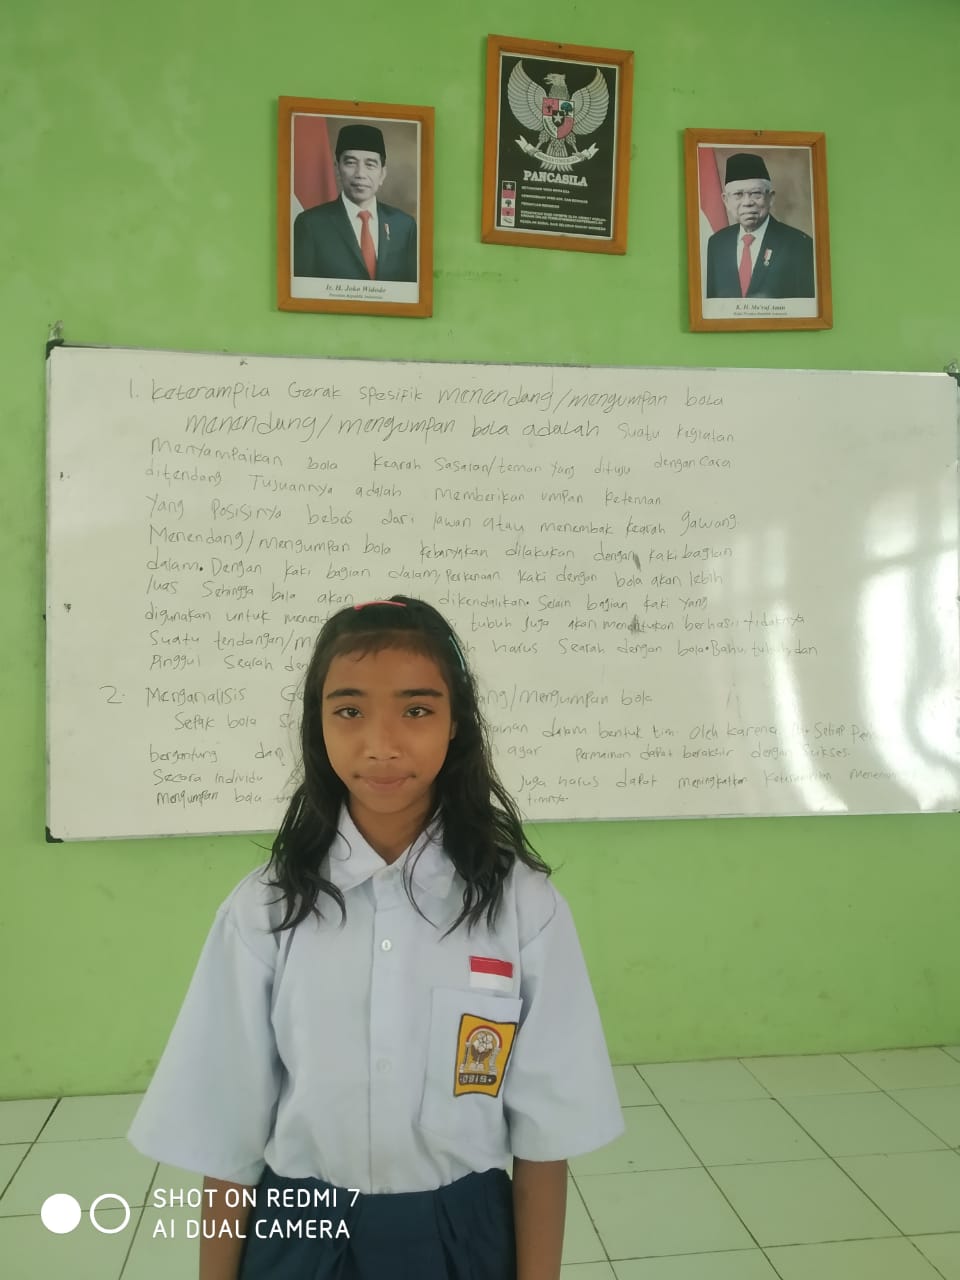 Ir. H. Joko Widodo
Presiden Republik Indonesia
PANCASILA
KETUHANAN YANG MAHA ESA
KEMANUSIAAN YANG ADIL DAN BERADAB
PERSATUAN INDONESIA
K. H. Ma'ruf Amin
Wakil Presiden Republik Indonesia
1. Keterampila Gerak Spesifik menendang/mengumpan bola
menendang/mengumpan bola adalah suatu kegiatan
Menyampaikan bola kearah Sasaran/teman Yang dituju dengan Cara
ditendang Tujuannya adalah memberikan umpan keteman
Yang Posisinya bebas dari lawan atau menembak kearah gawang.
Menendang/mengumpan bola kebanyakan dilakukan dengan kaki bagian
dalam. Dengan kaki bagian dalam, Perkenaan kaki dengan bola akan lebih
luas Sehingga bola akan dikendalikan. Selain bagian kaki Yang
digunakan untuk tubuh Juga akan menentukan berhasil tidaknya
Suatu tendangan/ harus Searah dengan bola. Bahu, tubuh, dan
Pinggul Searah
2. Menganalisis /mengumpan bola
Sepak bola dalam bentuk tim. Oleh karena Setiap
bergantung agar Permainan dapat berakhir dengan Sukses.
Secara individu juga harus dapat meningkatkan
mengumpan bola timnya.
OSIS
SHOT ON REDMI 7
AI DUAL CAMERA